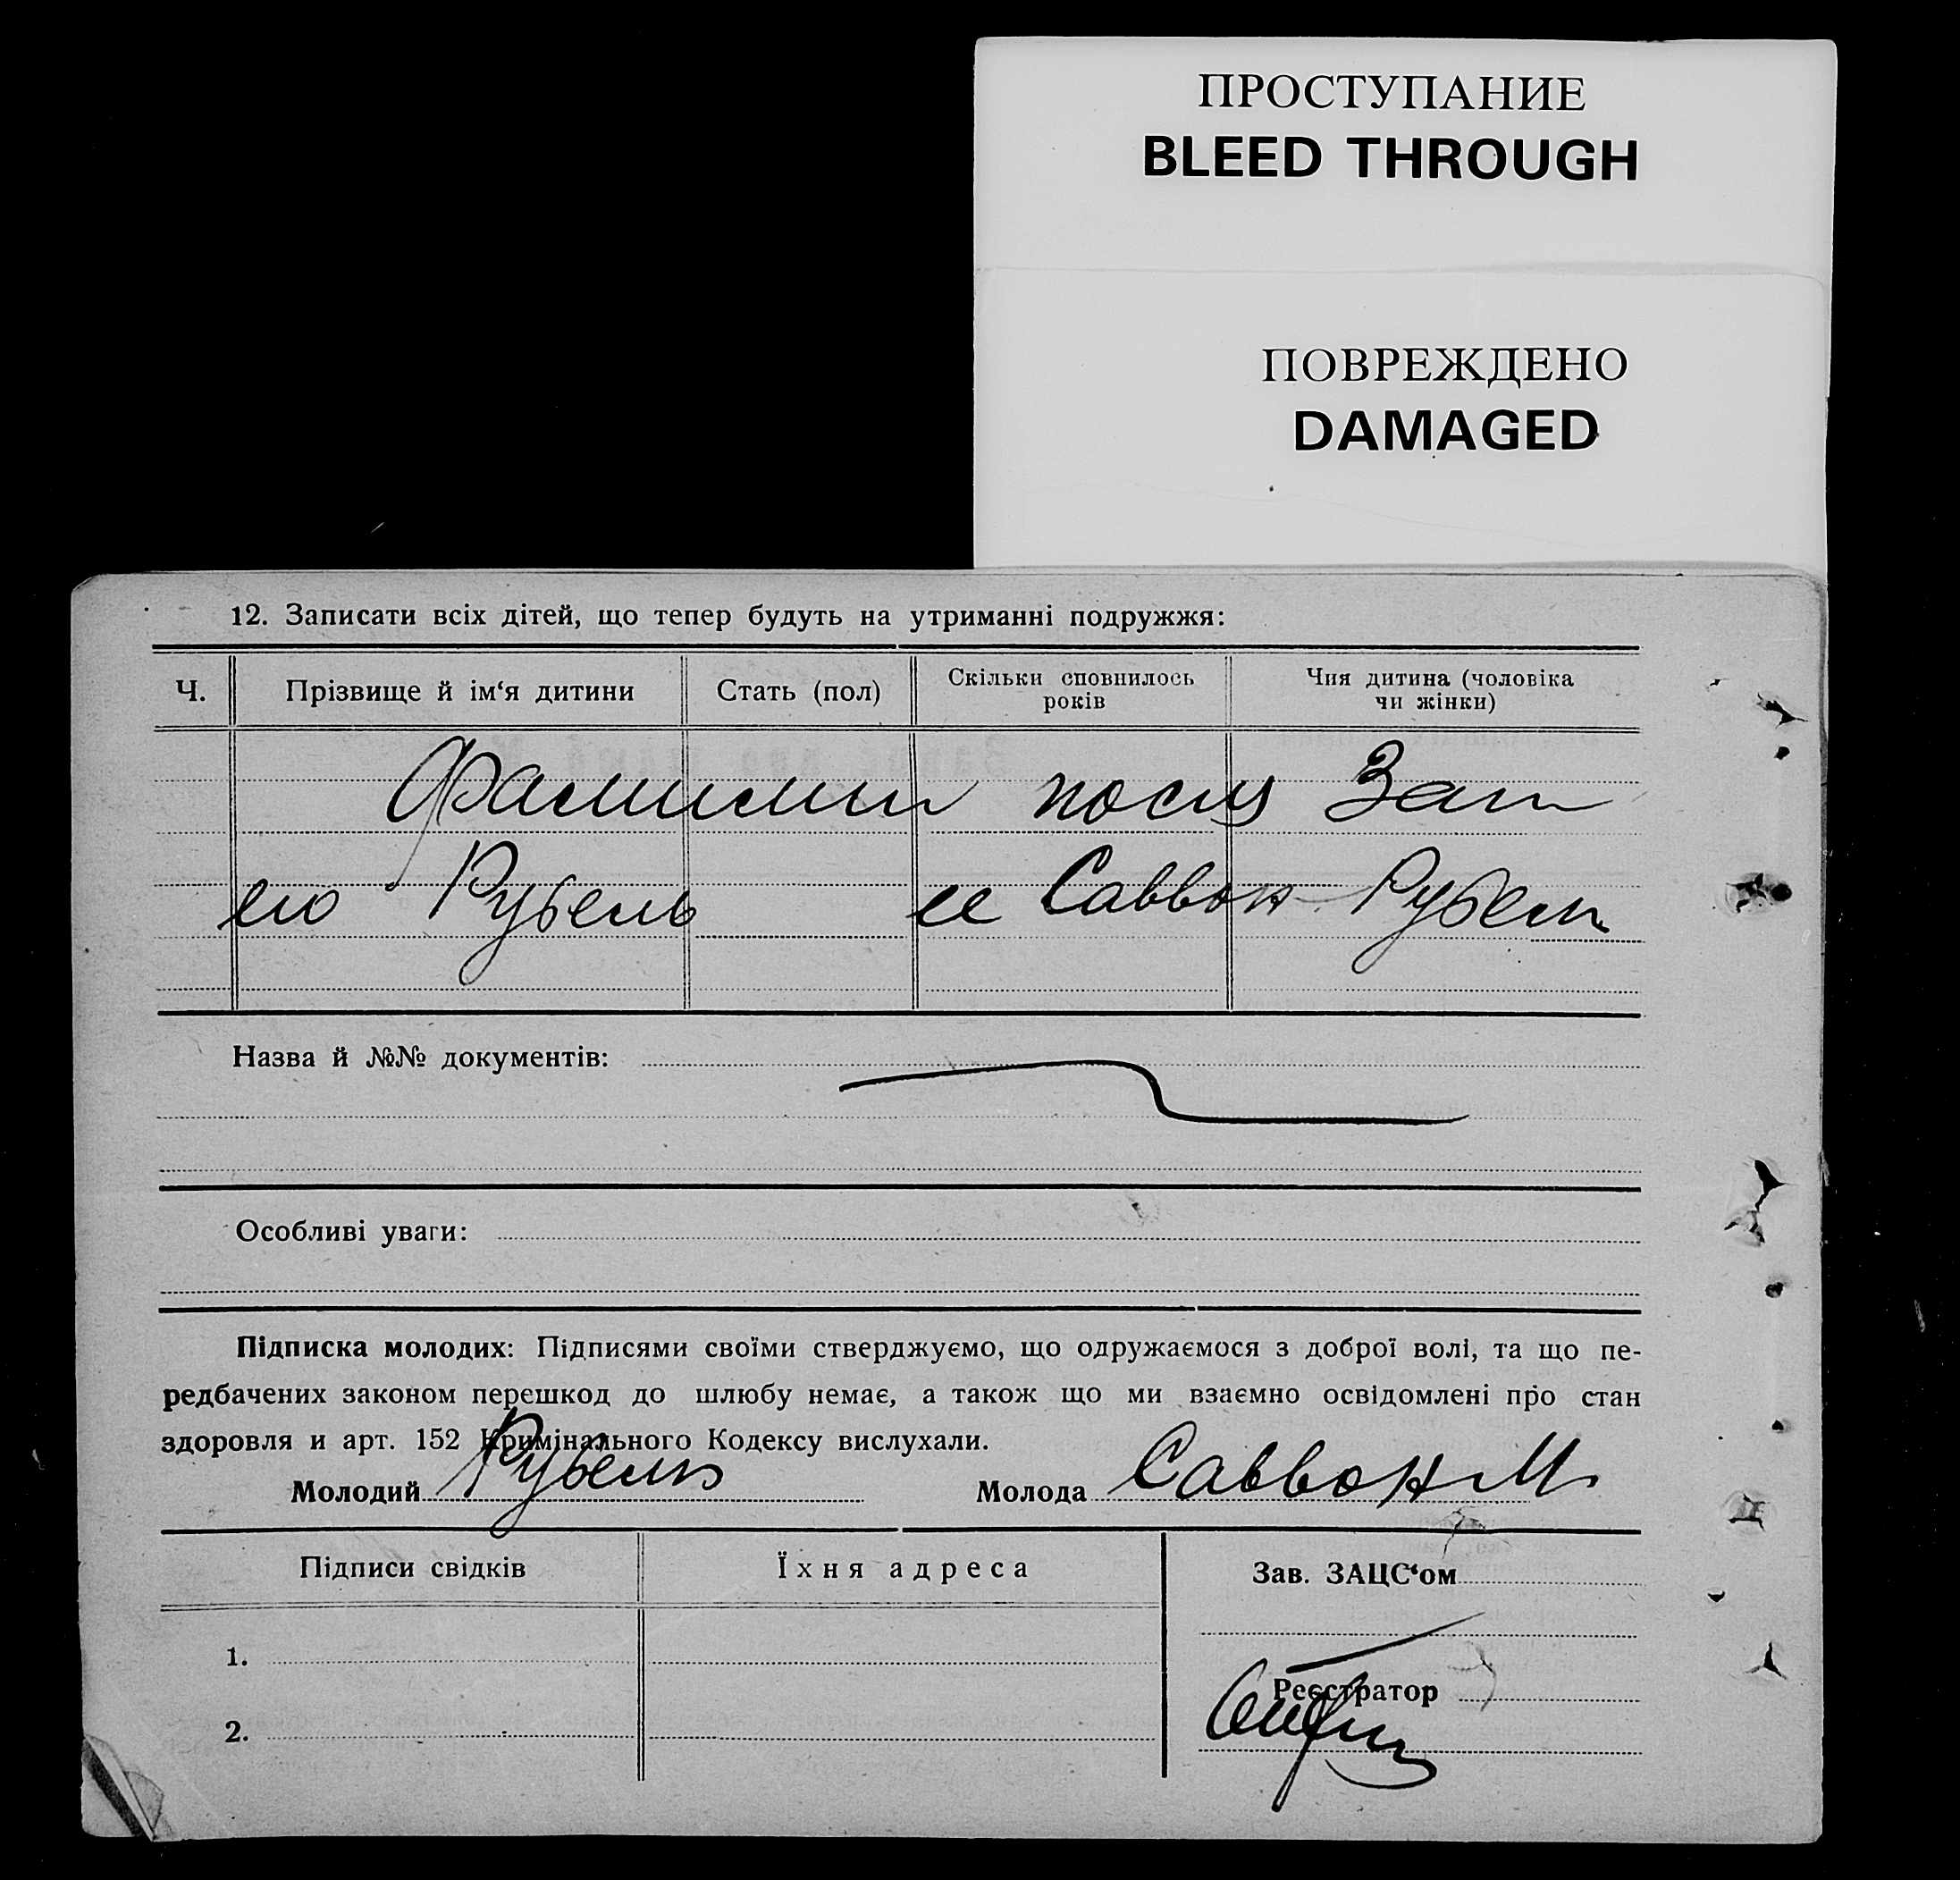 ПРОСТУПАНИЕ
BLEED THROUGH
ПОВРЕЖДЕНО
DAMAGED
12. Записати всіх дітей, що тепер будуть на утриманні подружжя:
Ч. Прізвище й ім‘я дитини Стать (пол) Скільки сповнилось років Чия дитина (чоловіка чи жінки)
Фамилии после Зап
его Рубель ее Саввон Рубель
Назва й №№ документів:
Особливі уваги:
Підписка молодих: Підписями своїми стверджуємо, що одружаємося з доброї волі, та що пе-
редбачених законом перешкод до шлюбу немає, а також що ми взаємно освідомлені про стан
здоровля и арт. 152 Кримінального Кодексу вислухали.
Молодий Рубель Молода Саввон М.
Підписи свідків Їхня адреса Зав. ЗАЦС‘ом
1.
Реєстратор
2.